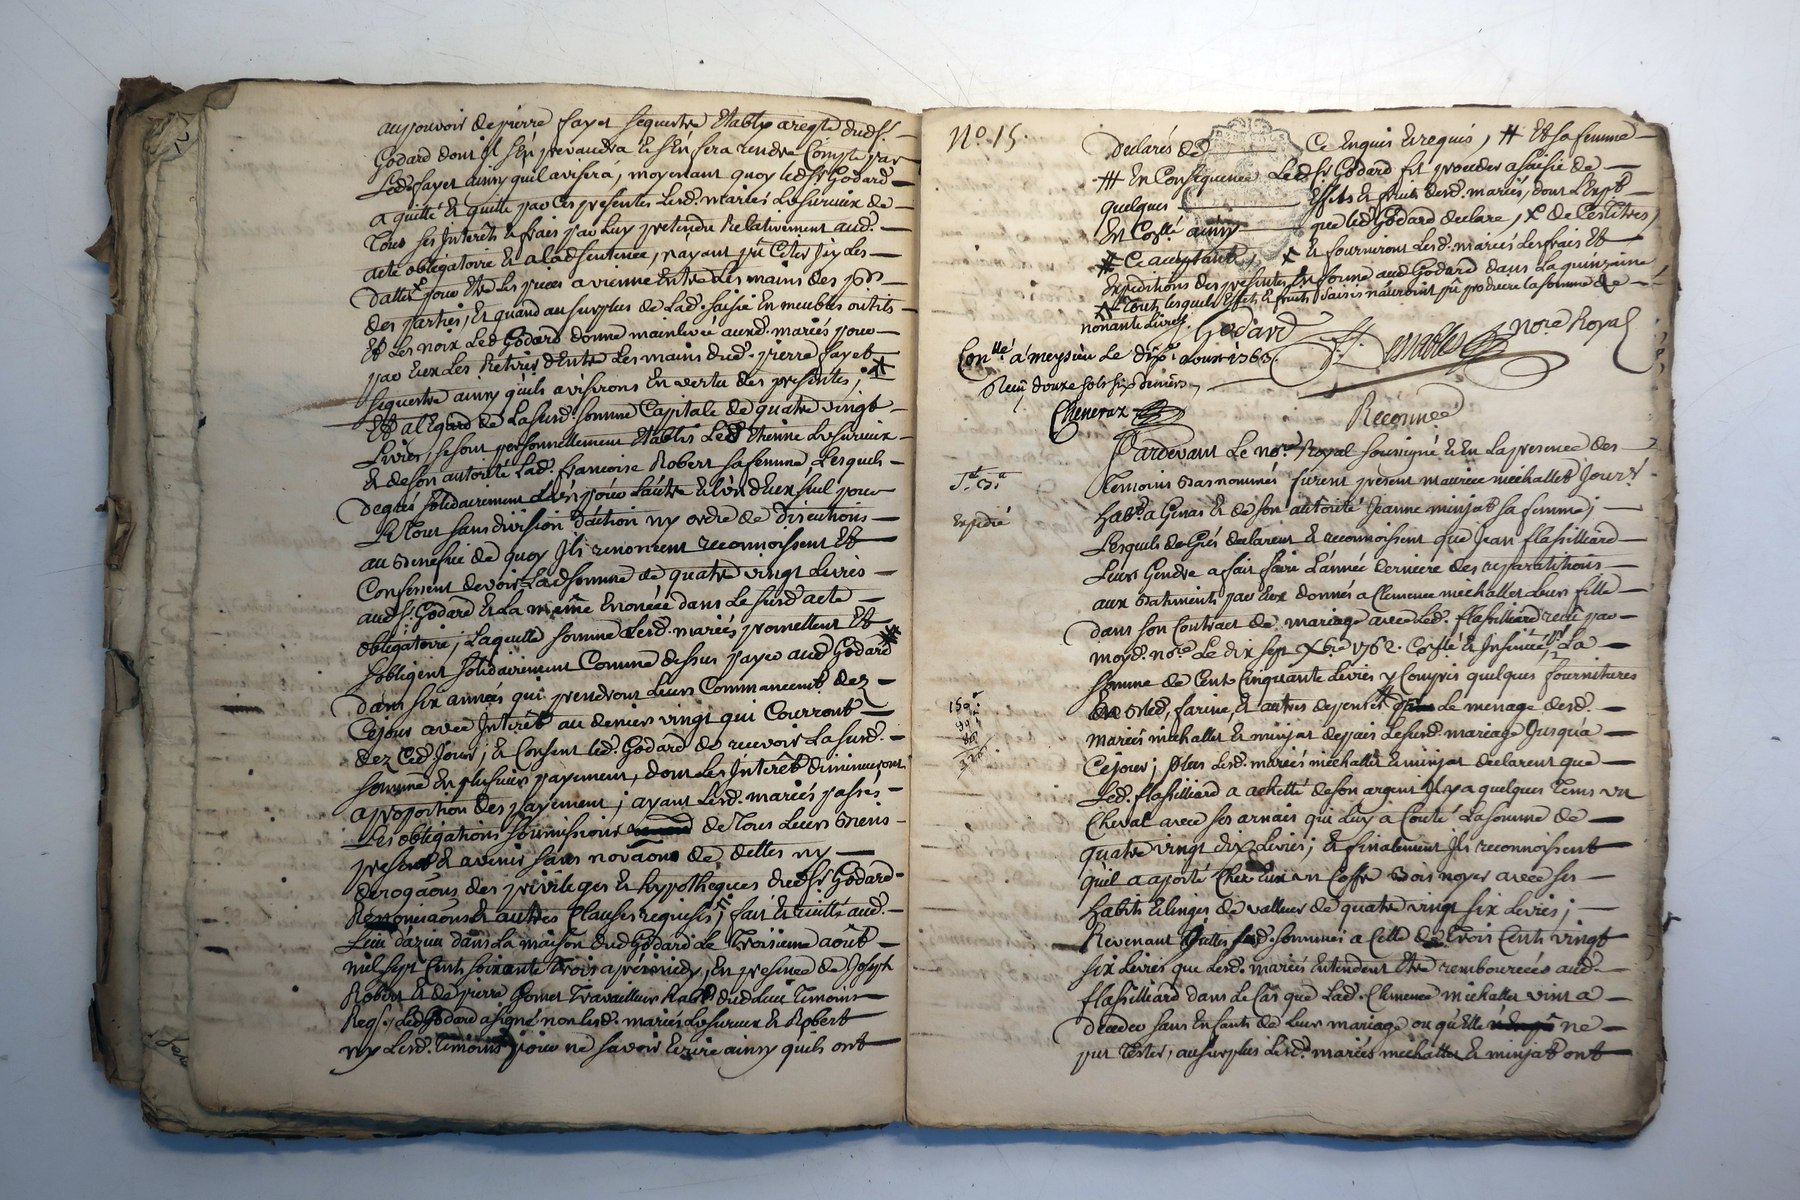 au pouvoir de pierre fayet sequestre Etably a regste dud Sr.
Godard dont Il s'en prevaudra & s'en fera rendre Compte par
Led. fayet ainsy quil avisera, moyenant quoy led. Sr. Godard
a quitté & quitte par Ces presentes Lesd. mariés Lesurieux de
Tous ses Interêts & frais par Luy pretendu Relativement aud.
acte obligatoire & a lad sentence, n'ayant pû Ceter Icy Les
dattes pour Etre Les pieces a vienne Entre Les mains des pr.
des parties, Et quand au surplus de Lad. saisie En meubles outils
Et Les noix Led. Godard donne mainlevée auxd. mariés pour
par Eux Les Retirer d'Entre Les mains dud. pierre fayet
sequestre ainsy quils aviseront En vertu des presentes;
Et al'Egard de La susd. somme Capitale de quatre vingt
Livres, se sont personnellement Etablis Led. Etienne Lesurieux
& de son autorité Lad. francoise Robert sa femme, Lesquels
de gré solidairement L'un pour L'autre & L'un d'Eux seul pour
Le Tout sans division d'action ny ordre de discutions
au Benefice de quoy Ils renoncent reconnoissent Et
Confessent devoir Lad somme de quatre vingt Livres
aud Sr. Godard & La meme Enoncée dans Le susd acte
obligatoire; Laquelle somme Lesd. mariés promettent Et
s'obligent solidairement Comme dessus payer aud Godard
dans six années qui prendront Leurs Commancemt. dez
Ce jour avec Interêt au denier vingt qui Courront
dez Ced. Jour; & Consent led. Godard de recevoir La susd.
somme En plusieurs payement, dont Les Interêt diminueront
a proportion des payement; ayant Lesd. mariés passés
Les obligations soumissions de Tous Leurs Biens
presents & avenir sans novaons de dettes ny
derogaons des privileges & hypotheques dud Sr Godard
Renonciaons & autres Clauses requises; fait & recitté aud.
Lieu d'azieu dans La maison dud Godard Le Troisieme août
mil sept Cents soixante Trois apres midy, En presence de Joseph
Robert & de pierre Gomet Travailleurs hab. dud. Lieu Temoins
Reqs. Led Godard a signé non lesd. mariés Lesurieux & Robert
ny Lesd. Temoins pour ne savoir Ecrire ainsy quils ont
No. 15.
Declarés de Ce Enquis & requis, # Et sa femme
# En Consequence Led. Sr Godard fit proceder a saisie de
quelques Effets & fruits desd. mariés, dont L'Expt.
En Coplé ainsy que led Godard declare,
Ce acceptant, & fourniront Lesd. mariés Les frais Et
Expeditions des presentes En forme aud Godard dans La quinzaine
Tout Lesquels Effets & fruits saisis n'auroint pû produire la somme de
nonante Livres.
Godard
Demables
Nore. Royal
Conllé. a meysieu Le dix aoux 1763.
Reçu douze sols six deniers
Cheneraz
Reconnce
Pardevant Le nore. Royal soussigné & En La presence des
Temoins Bas nommés furent present maurice michallet Jourr.
Expedié
habt. a Genas & de son autorité Jeanne minjat sa femme;
Lesquels de Grés declarent & reconnoissent que Jean flassilliard
Leur Gendre a fait faire L'année derniere des reparations
aux Batiments par Eux donnés a Clemence michallet Leur fille
dans son Contract de mariage avec Led. flassilliard recû par
moyd. nore. Le dix sept Xbre 1762. Coplé & Insinué, La
somme de Cent Cinquante Livres y Compris quelques fournitures
150
90
86
326
En Bled, farine, & autres depences Le menage desd.
mariés michallet & minjat depuis Le susd. mariage Jusqu'a
Ce jour; plus Lesd. mariés michallet & minjat declarent que
Led. flassilliard a achetté de son argent Il y a quelques Tems un
Cheval avec ses arnais qui Luy a Couté La somme de
quatre vingt dix Livres; & finalement Ils reconnoissent
qu'il a aporté Chez Eux un Coffre Bois noyer avec ses
habits & Linges de valleur de quatre vingt six Livres;
Revenant Toutes Lesd. sommes a Celle de Trois Cents vingt
six Livres que Lesd. mariés Entendent Etre rembourcées aud.
flassilliard dans Le Cas que Lad. Clemence michallet vint a
deceder sans Enfants de Leur mariage ou qu'Elle ne
put Tester, au surplus Lesd. mariés michallet & minjat ont